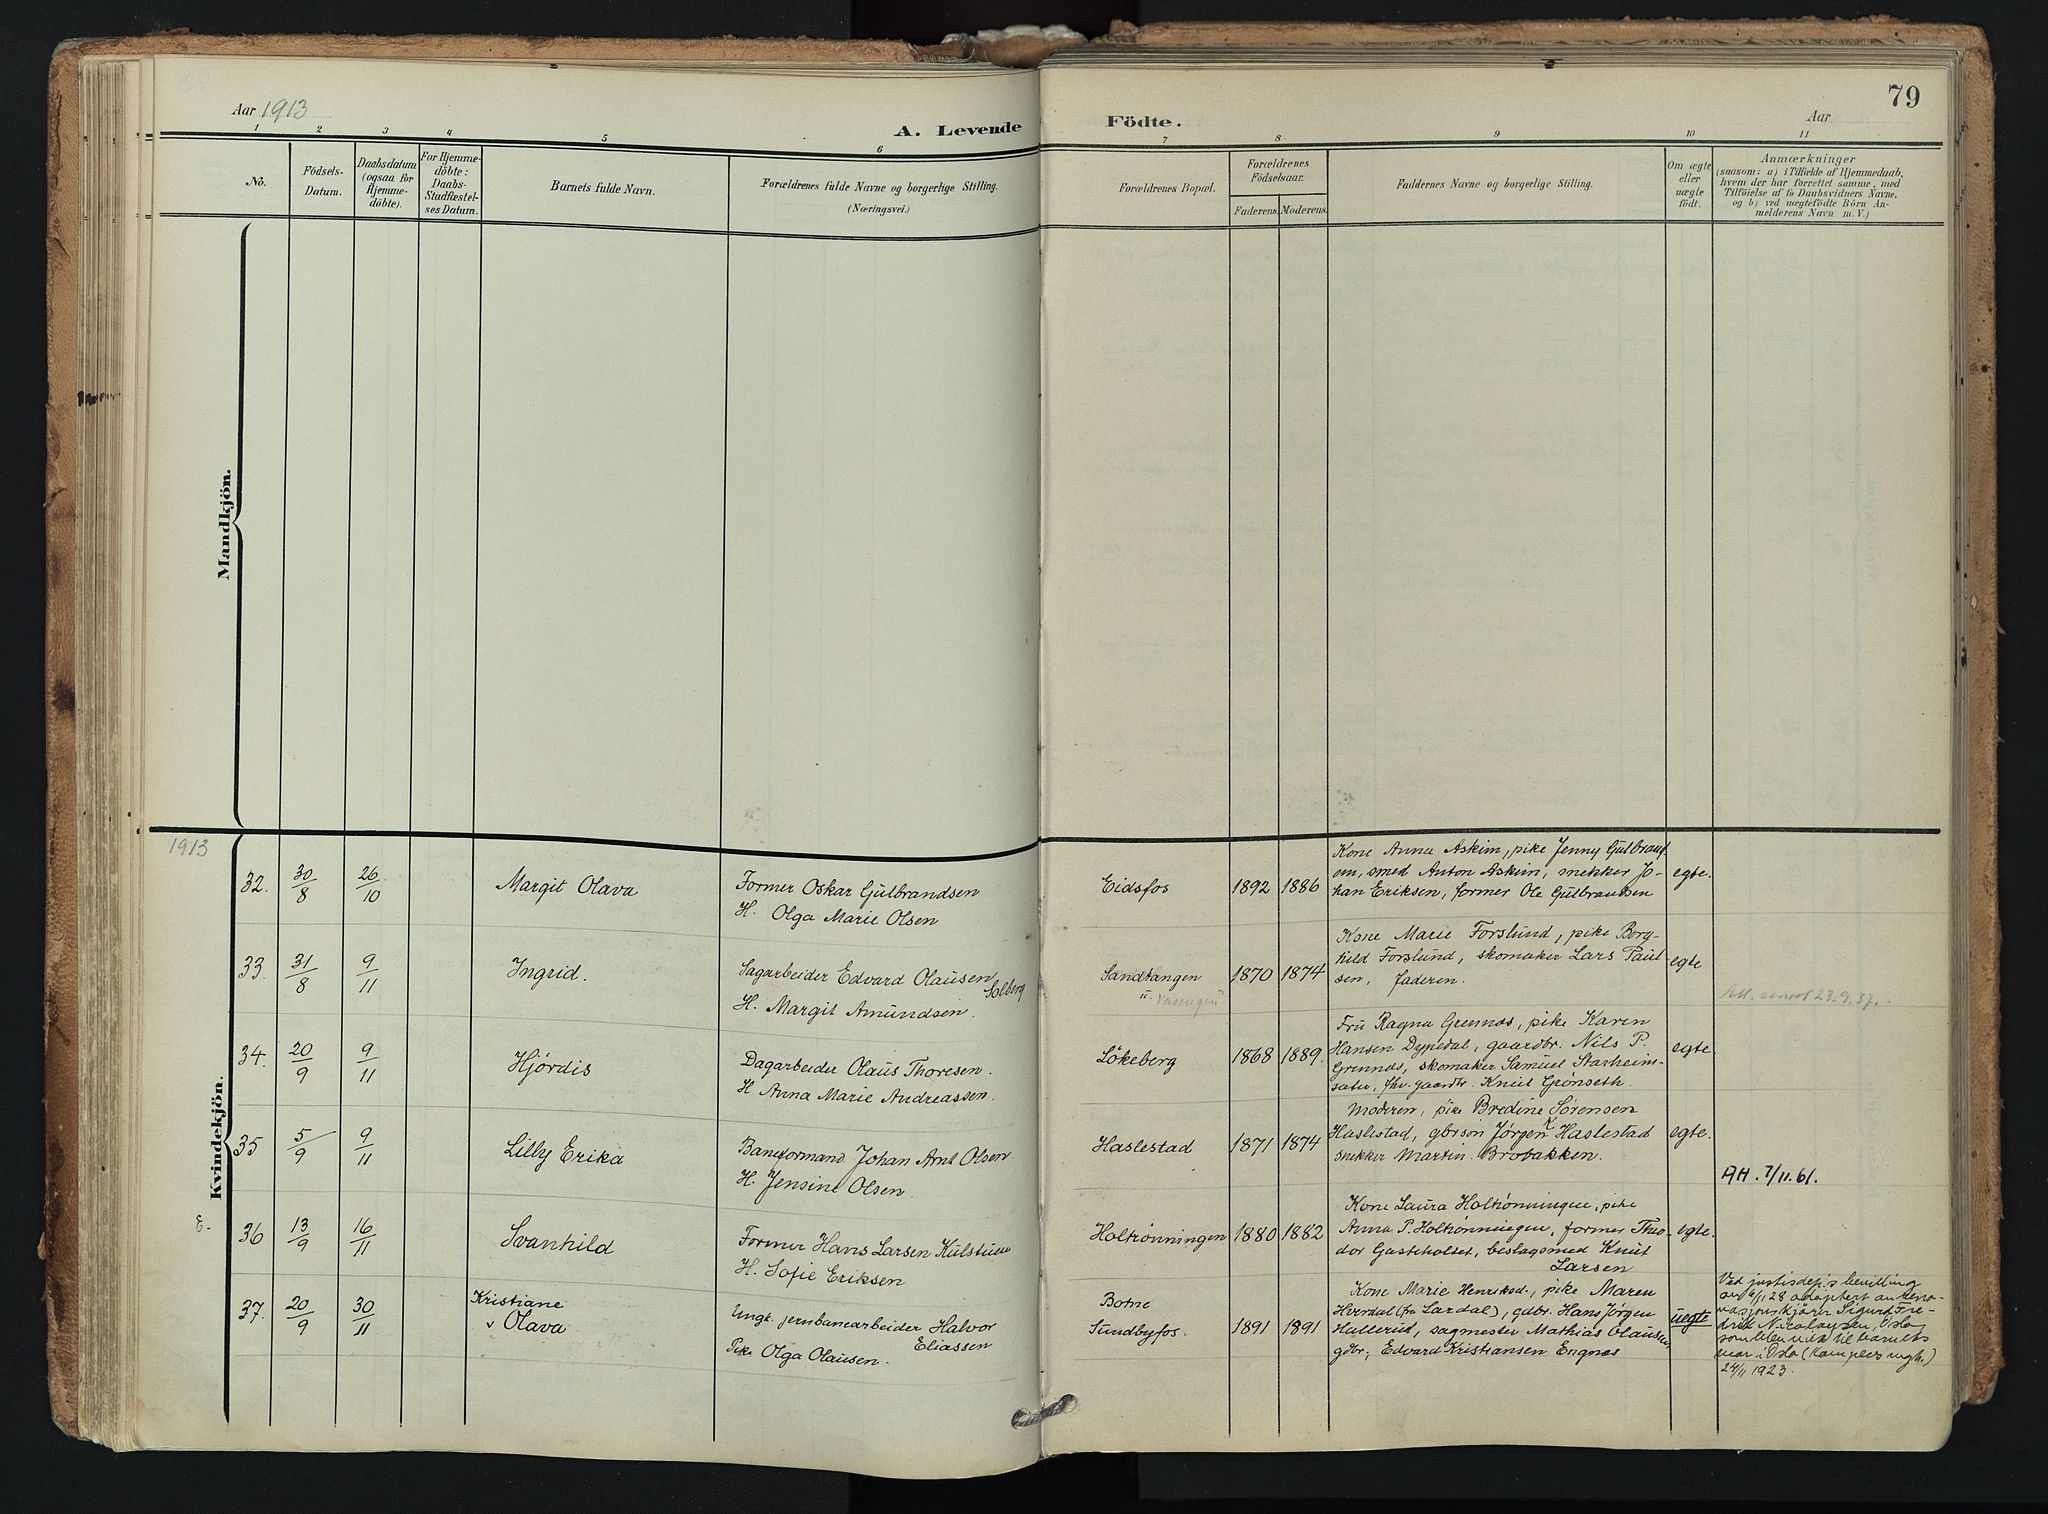 79
Aar 1913
A. Levende Födte.
Aar
1 2 3 4 5 6 7 8 9 10 11
No.
Födsels-
Datum.
Daabsdatum
(ogsaa for
Hjemme-
döbte).
For Hjemme-
döbte:
Daabs-
Stadfæstel-
ses Datum.
Barnets fulde Navn.
Forældrenes fulde Navne og borgerlige Stilling.
(Næringsvei.)
Forældrenes Bopæl.
Forældrenes
Födselsaar.
Faderens. Moderens.
Faddernes Navne og borgerlige Stilling.
Om ægte
eller
uægte
födt.
Anmærkninger
(saasom: a) i Tilfælde af Hjemmedaab,
hvem der har forrettet samme, med
Tilföielse af to Daabsvidners Navne,
og b) ved uegtefödte Börn An-
melderens Navn m. V.)
Mandkjön.
Kvindekjön.
1913
32. 30/8 26/10 Margit Olava
Former Oskar Gulbrandsen
H. Olga Marie Olsen
Eidsfos 1892 1886
Kone Anna Askim, pike Jenny Gulbrand
sen, smed Anton Askim, snekker Jo-
han Eriksen, former Ole Gulbrandsen
egte.
33. 31/8 9/11 Ingrid.
Sagarbeider Edvard Olausen
Solberg
H. Margit Amundsen.
Sandtangen
u.
1870 1874
Kone Marie Forslund, pike Borg-
hild Forslund, skomaker Lars Paul-
sen, faderen.
egte
Att. 23.9.37.
34. 20/9 9/11 Hjørdis
Dagarbeider Olaus Thoresen.
H Anna Marie Andreassen.
Løkeberg 1868 1889.
Fru Ragna Grennes, pike Karen
Hansen Dypedal, gaardbr. Nils P.
Grennes, skomaker Samuel Starheim-
sæter, fhv. gaardbr. Knut Grønseth.
egte.
35 5/9 9/11 Lilly Erika
Baneformand Johan Arnt Olsen
H. Jensine Olsen.
Haslestad 1871 1874
Moderen, pike Bredine Sørensen
Haslestad, gbrsøn Jørgen K Haslestad
snekker Martin Brobakken.
egte.
AH. 7/11.61.
E.
36 13/9 16/11 Svanhild
Former Hans Larsen Kulstuen
H. Sofie Eriksen
Holtrønningen 1880 1882
Kone Laura Holtrønningen, pike
Anna P. Holtrønningen, former Theo-
dor Gusteholtet, beslagsmed Knut
Larsen
egte.
37. 20/9 30/11 Kristiane
v Olava
Ungk. jernbanearbeider Halvor
Eliassen
Pike Olga Olausen.
Botne
Sundbyfos. 1891 1891
Kone Marie Henriksd., pike Maren
Herrdal (fra Lardal), gdbr. Hans Jørgen
Hallerud, sagmester Mathias Olausen,
gdbr. Edvard Kristiansen Engnæs
uegte
Ved justisdep.s bevilling
av 6/11 28 adoptert av reno-
vasjonskjører Sigurd Fre-
drik Nicolaysen, Oslo,
som blev viet til barnets
mor i Oslo (Kampens mgh.)
24/11 1923.